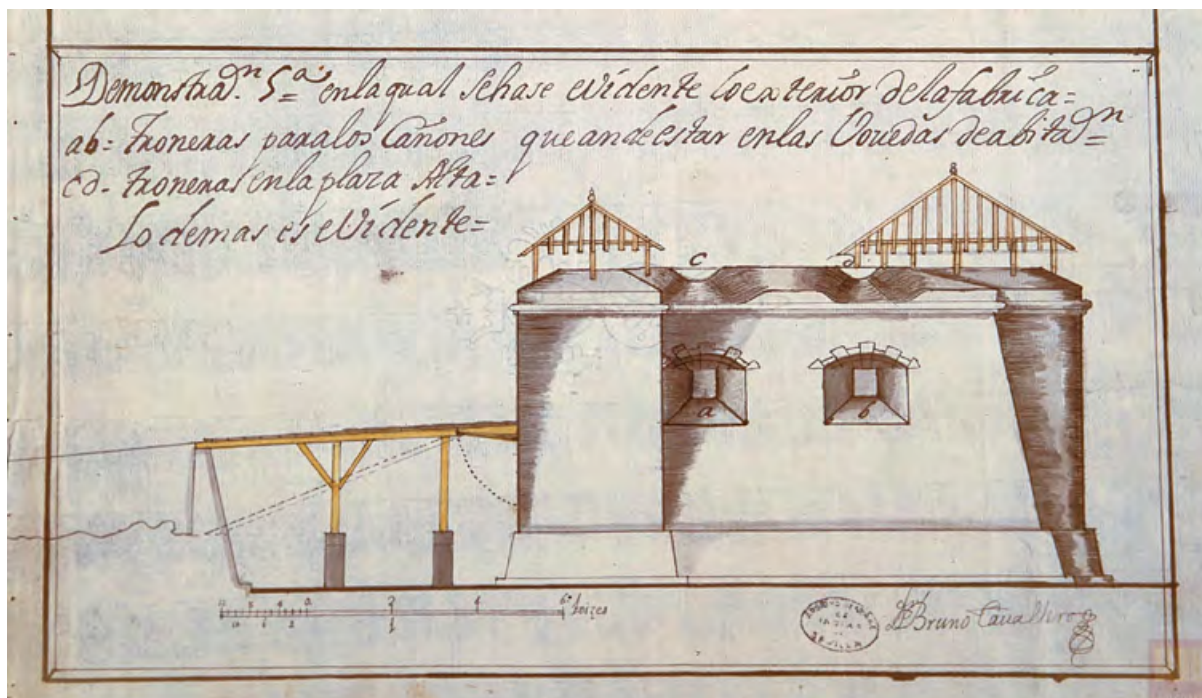 Demonstraᵒⁿ. 5ª= enlaqual Sehase evidente loexterior delafabrica=
ab= troneras paralos Cañones queandeestar enlas Vovedas deabitaᵒⁿ=
cd- troneras enlaplaza Alta=
Lo demas es evidente=
c d
a b
6 toizes
ARCHIVO GENERAL DE INDIAS SEVILLA
Dn Bruno Cavallero